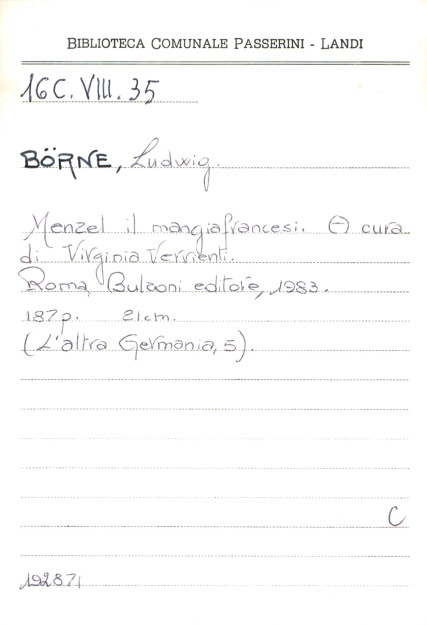 BIBLIOTECA COMUNALE PASSERINI - LANDI
16C. VIII. 35
BÖRNE, Ludwig.
Menzel il mangiafrancesi. A cura
di Virginia Verrienti.
Roma, Bulzoni editore, 1983.
187p. 21cm.
(L'altra Germania, 5).
C
192871